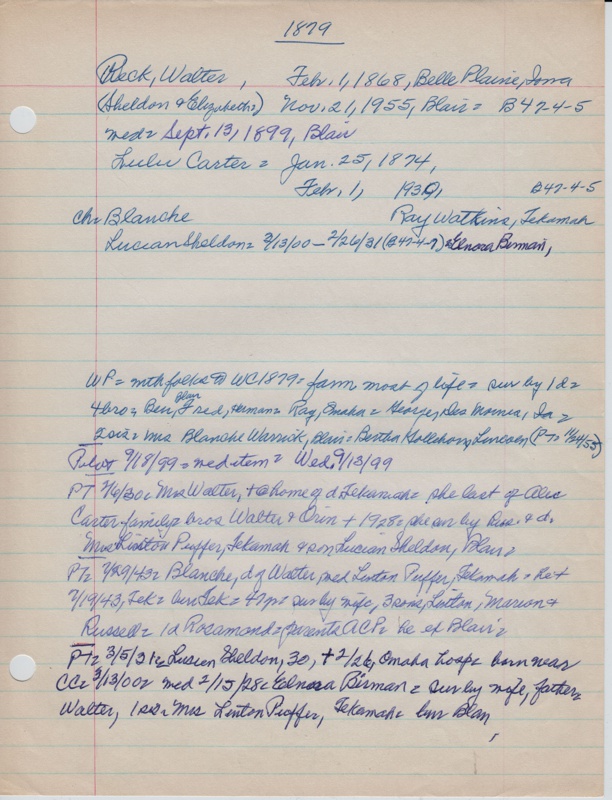 1879
Reck, Walter, Feb. 1, 1868, Belle Plaine, Iowa
(Sheldon & Elizabeth=) Nov. 21, 1955, Blair= B47-4-5
med= Sept. 13, 1899, Blair
Lulu Carter= Jan. 25, 1874,
Feb. 1, 1930, B47-4-5
ch= Blanche Ray Watkins, Tekamah
Lucian Sheldon= 3/13/00 - 2/26/31 (B47-4-7) = Elnora Birman,
WP= mth folks to WC 1879= farm most of life= sur by 1d=
4 bro= Ben, Blair Fred, Herman= Ray, Omaha= George, Des Moines, Ia=
2 sis= Mrs Blanche Warrick, Blair= Bertha Hollshorn, Lincoln (PT= 11/24/55)
Pilot 9/18/99= med item= Wed. 9/13/99
PT 2/6/30= Mrs Walter, + @ home of d. Tekamah= she last of Alex
Carter family= bros Walter & Orin + 1928= she sur by hus. & d.
Mrs Linton Puffer, Tekamah & son Lucian Sheldon, Blair=
PT= 7/29/43= Blanche, d of Walter, med Linton Puffer, Tekamah= he +
7/19/43, Tek= bur Tek= 47 yr= sur by wife, 3 sons, Linton, Marion &
Russell= 1d Rosamond= parents ACP= he ex Blair=
PT= 3/5/31= Lucien Sheldon, 30, + 2/26, Omaha hosp= born near
CC= 3/13/00= med 2/15/28= Elnora Birman= sur by wife, father=
Walter, 1 sis= Mrs Linton Puffer, Tekamah= bur Blair,